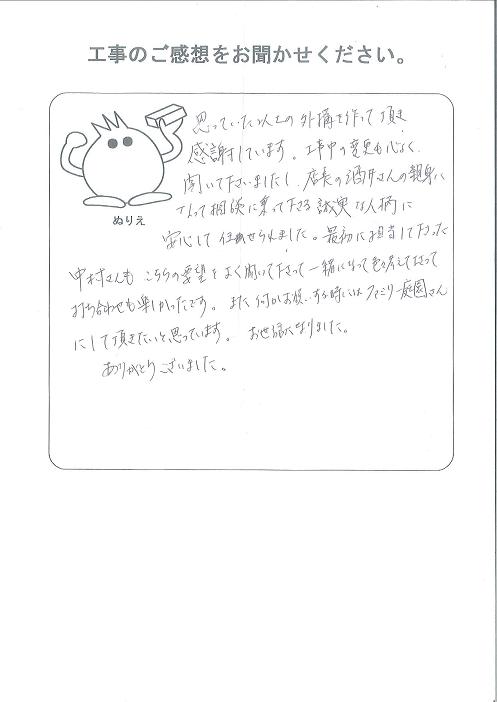 工事のご感想をお聞かせください。
ぬりえ
思っていた以上の外構を作って頂き
感謝しています。工事中の変更も心よく
聞いて下さいましたし、店長の酒井さんの親身に
なって相談に乗って下さる誠実な人柄に
安心して任せられました。最初に担当して下さった
中村さんも こちらの要望をよく聞いて下さって一緒になって色々考えて下さって
打ち合わせも楽しかったです。また何かお願いする時にはファミリー庭園さん
にして頂きたいと思っています。お世話になりました。
ありがとうございました。